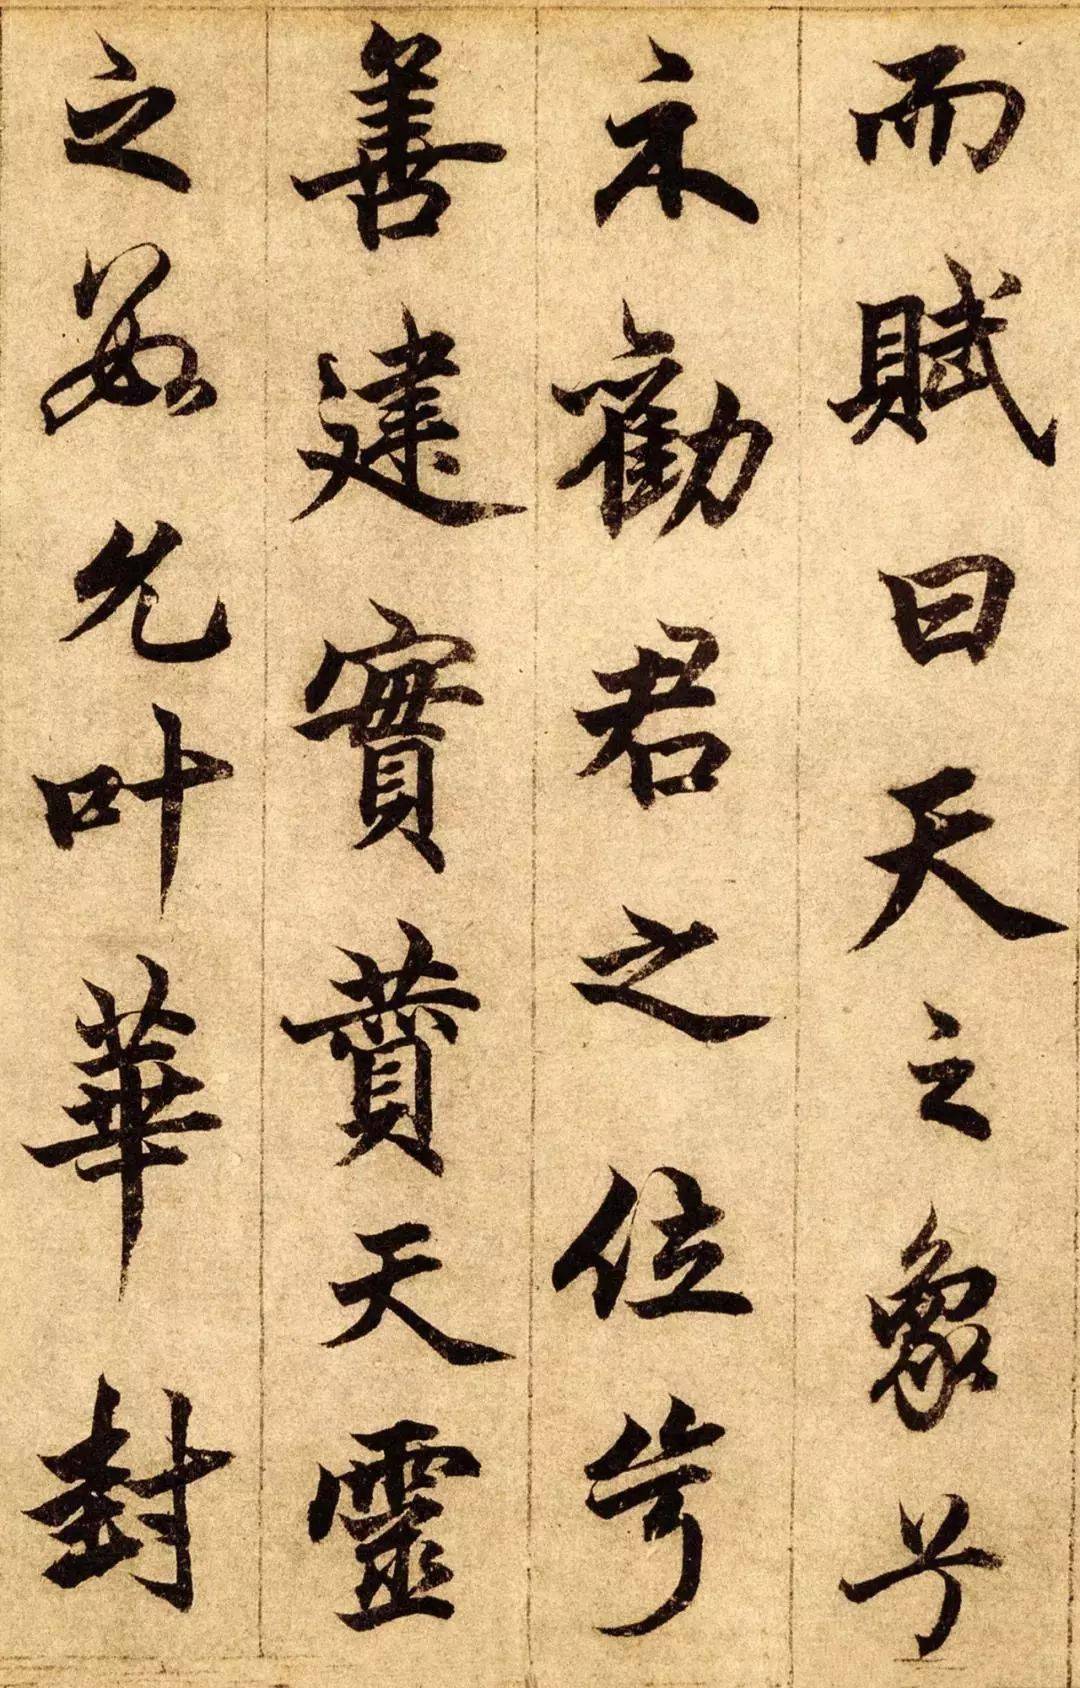 而賦曰天之象兮
示勸君之位兮
善建實賁天靈
之允叶華封